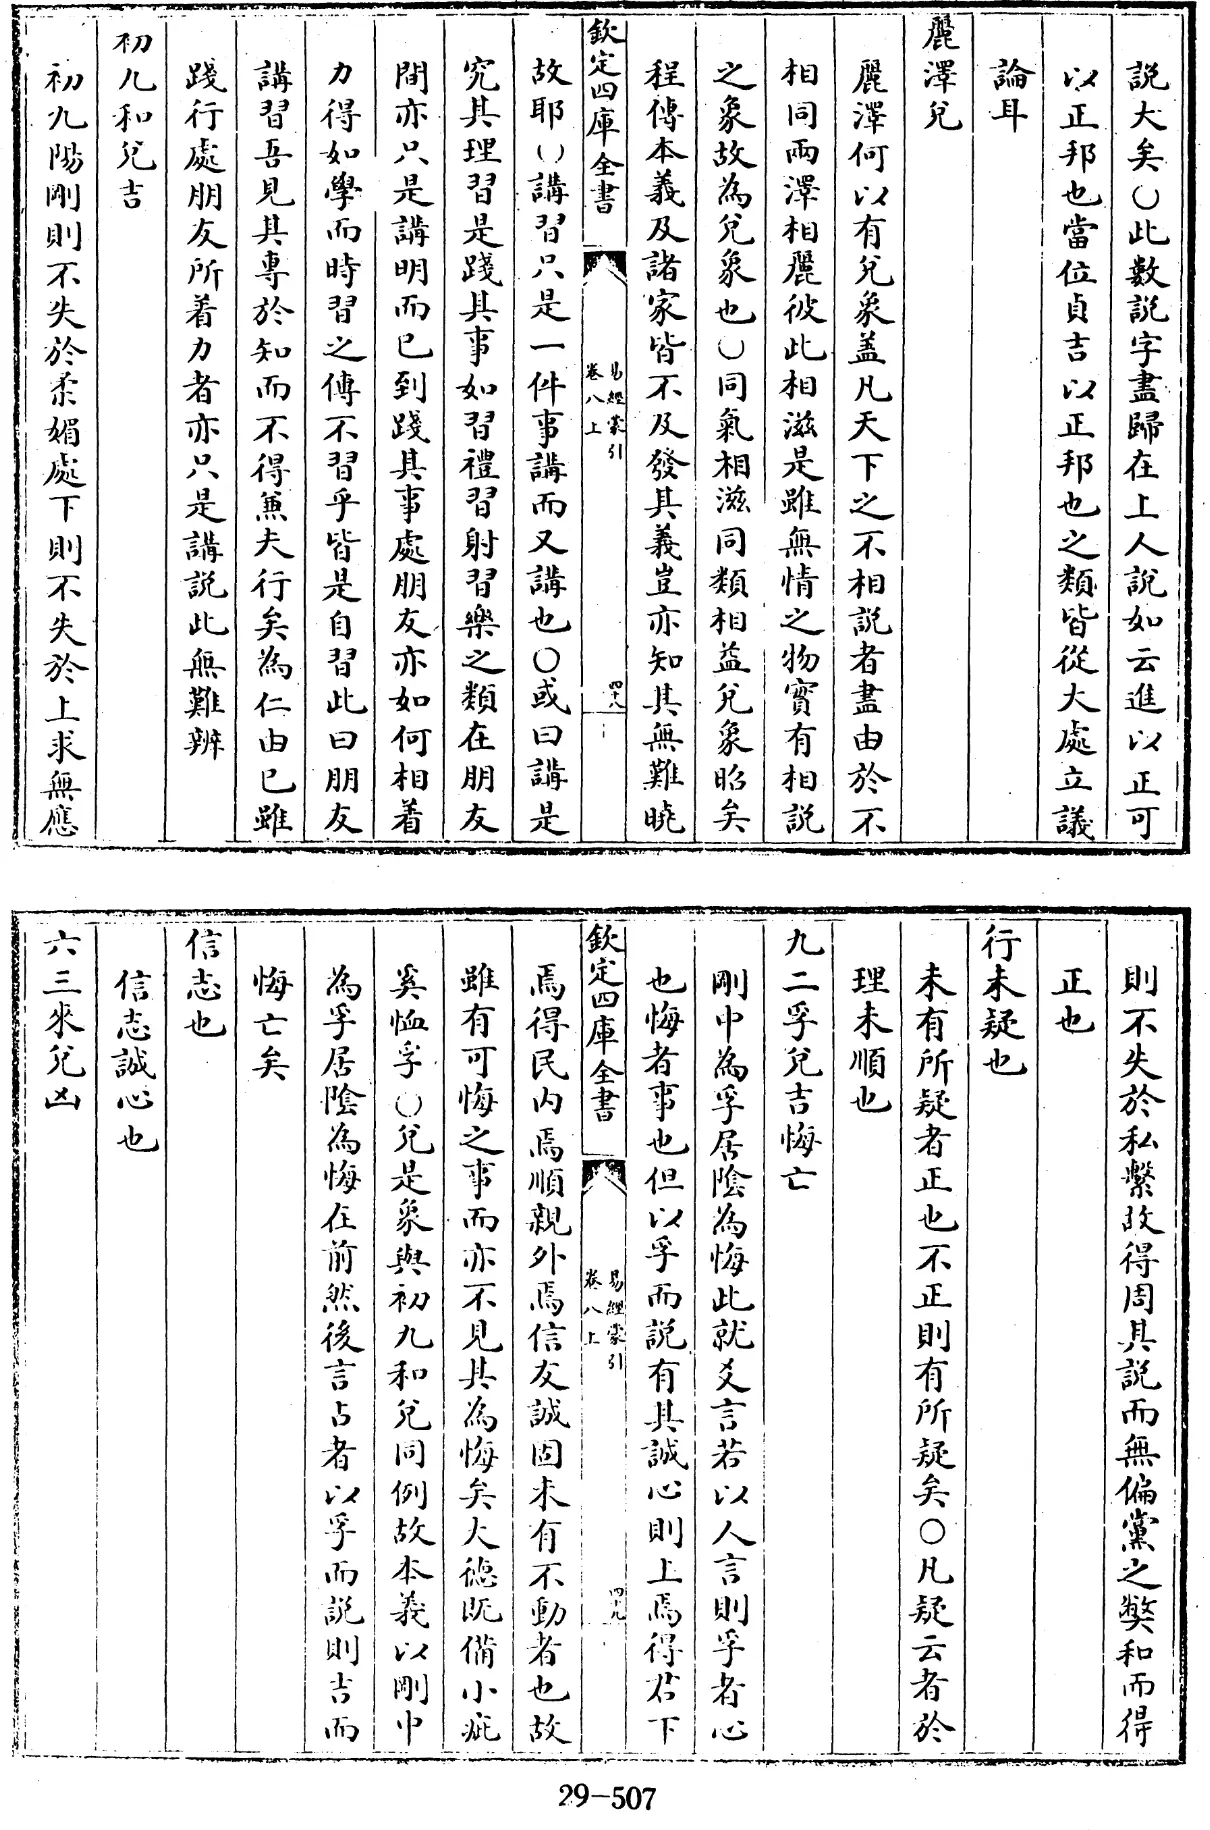 說大矣○此數說字盡歸在上人說如云進以正可
以正邦也當位貞吉以正邦也之類皆從大處立議
論耳
麗澤兌
麗澤何以有兌象盖凡天下之不相說者盡由於不
相同兩澤相麗彼此相滋是雖無情之物實有相說
之象故為兌象也○同氣相滋同類相益兌象昭矣
程傳本義及諸家皆不及發其義豈亦知其無難曉
欽定四庫全書
易經蒙引
卷八上
四十八
故耶○講習只是一件事講而又講也○或曰講是
究其理習是踐其事如習禮習射習樂之類在朋友
間亦只是講明而已到踐其事處朋友亦如何相着
力得如學而時習之傳不習乎皆是自習此曰朋友
講習吾見其專於知而不得兼夫行矣為仁由已雖
踐行處朋友所着力者亦只是講說此無難辨
初九和兌吉
初九陽剛則不失於柔媚處下則不失於上求無應
則不失於私繫故得周其說而無偏黨之弊和而得
正也
行未疑也
未有所疑者正也不正則有所疑矣○凡疑云者於
理未順也
九二孚兌吉悔亡
剛中為孚居陰為悔此就爻言若以人言則孚者心
也悔者事也但以孚而說有其誠心則上焉得君下
欽定四庫全書
易經蒙引
卷八上
四十九
焉得民内焉順親外焉信友誠固未有不動者也故
雖有可悔之事而亦不見其為悔矣大德既備小疵
奚恤孚○兌是象與初九和兌同例故本義以剛中
為孚居陰為悔在前然後言占者以孚而說則吉而
悔亡矣
信志也
信志誠心也
六三來兌凶
29-507